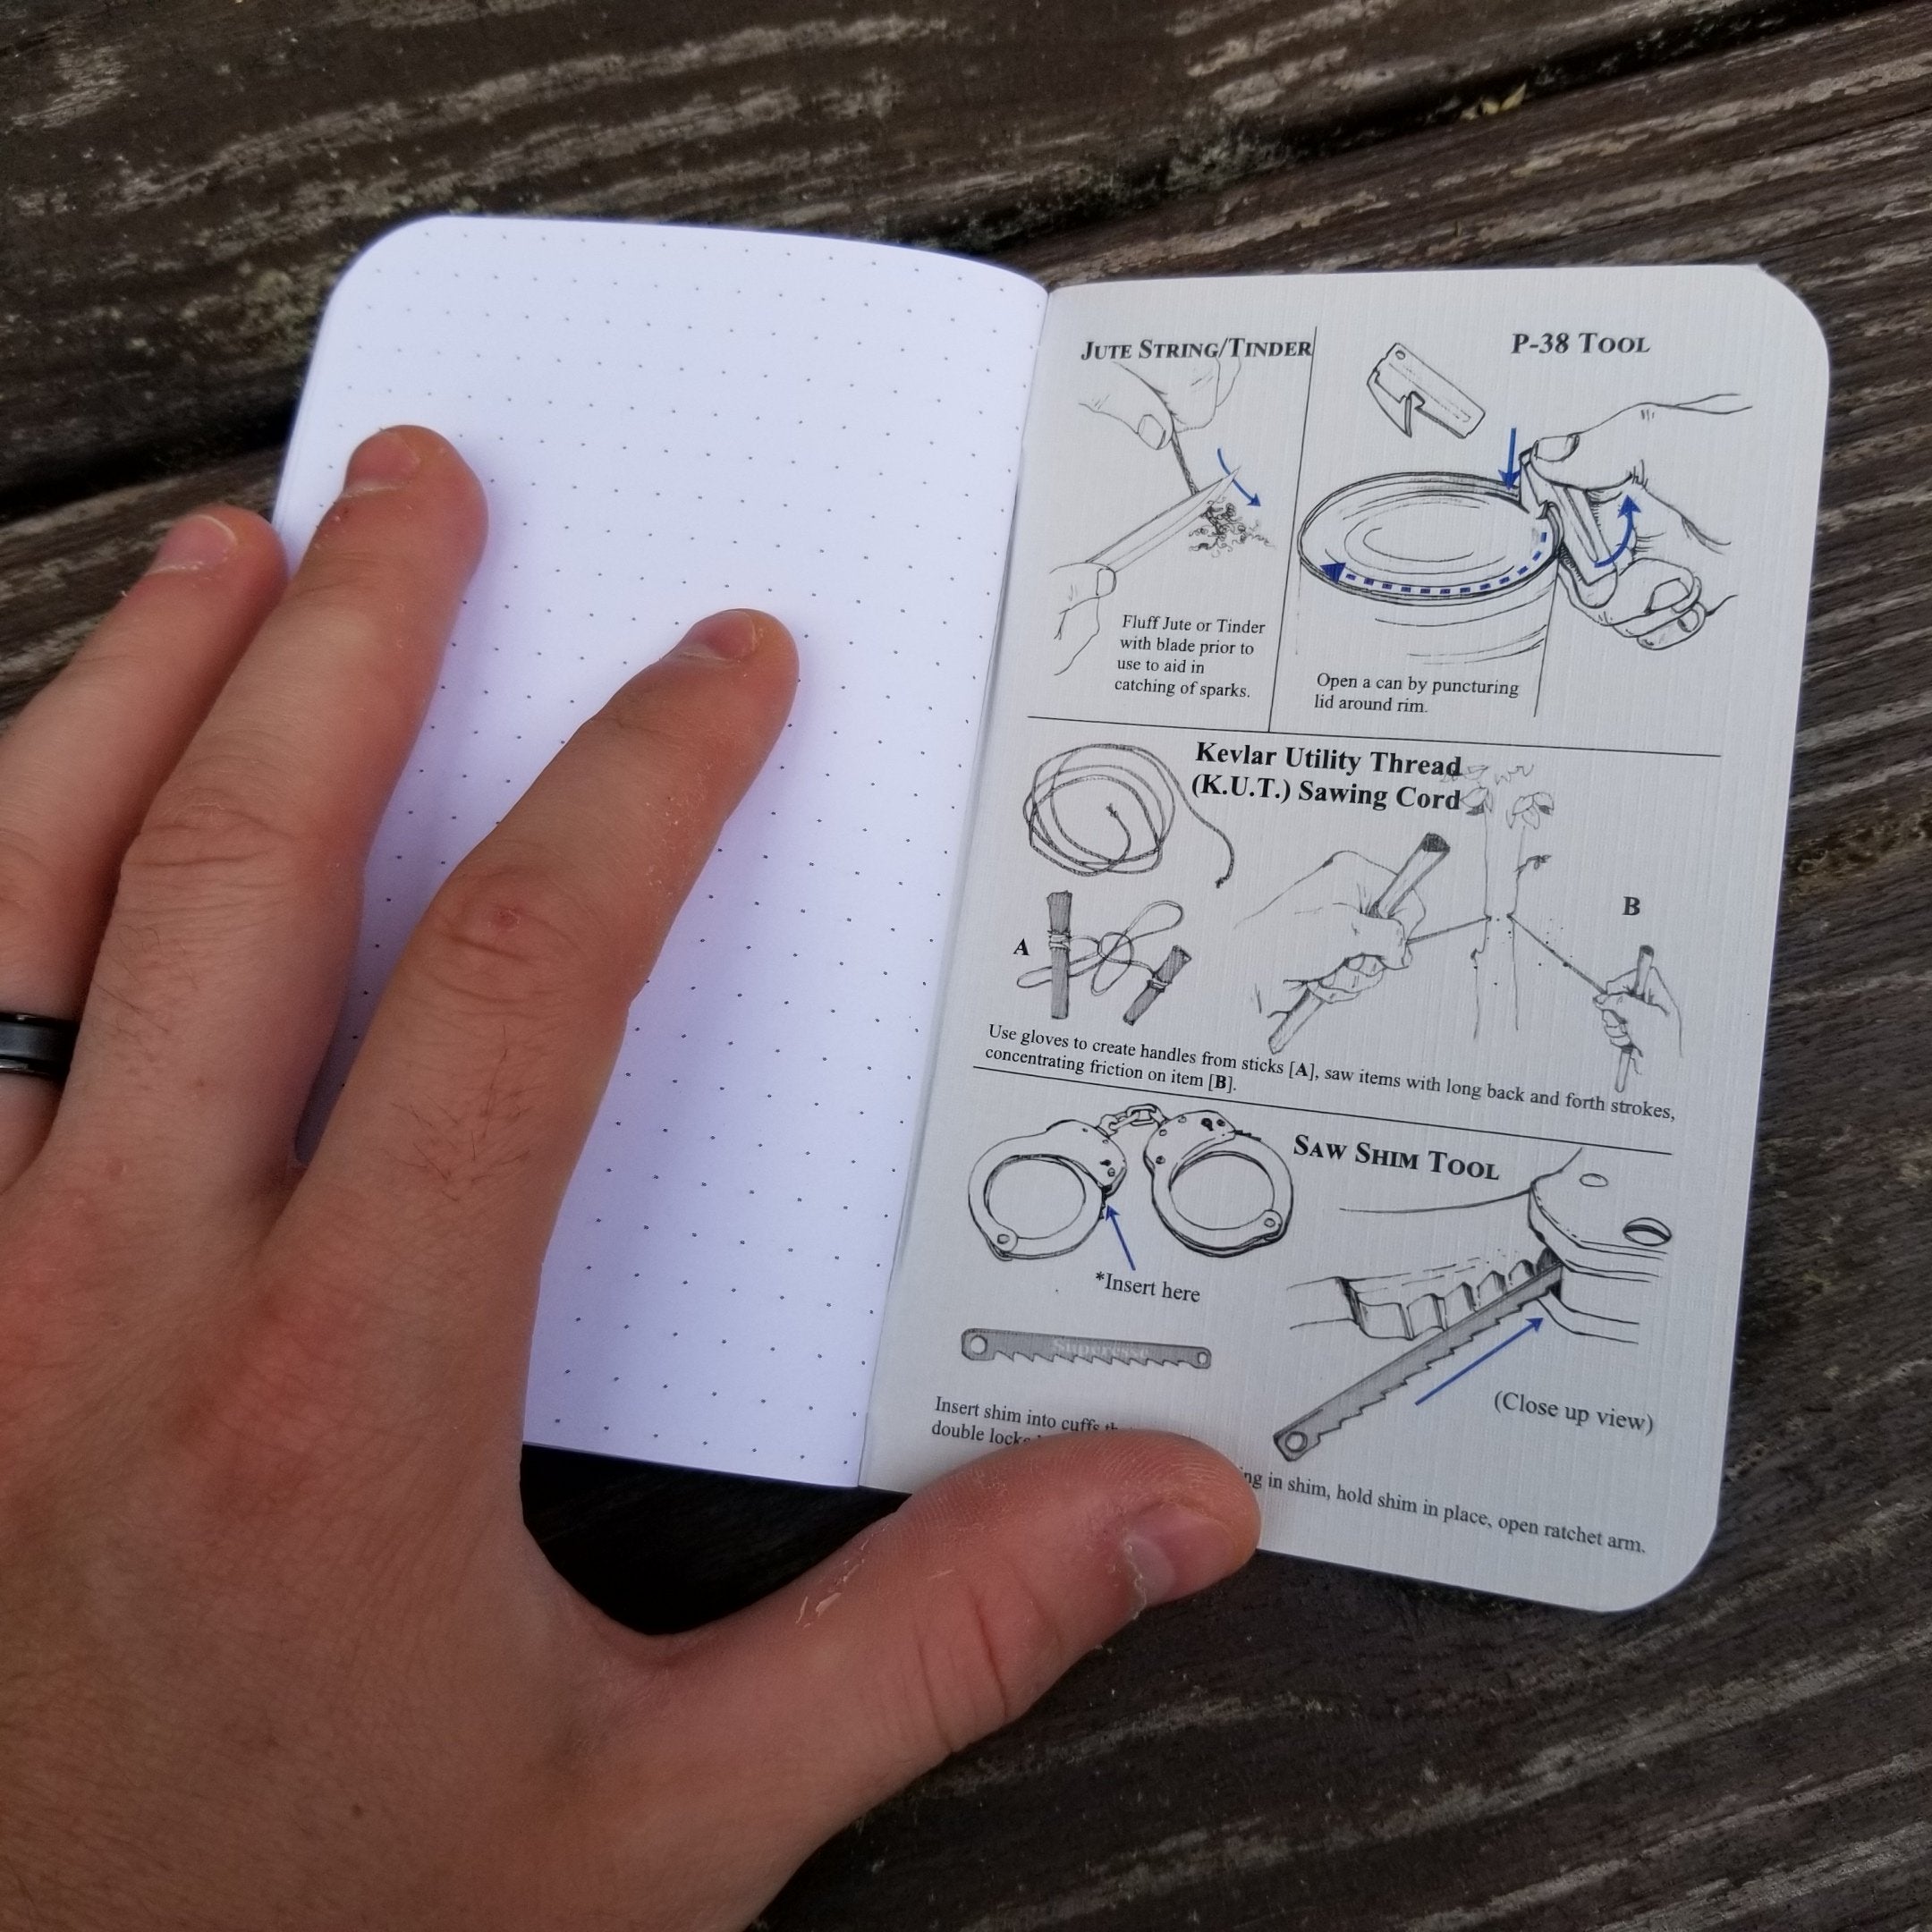 JUTE STRING/TINDER
Fluff Jute or Tinder
with blade prior to
use to aid in
catching of sparks.
P-38 TOOL
Open a can by puncturing
lid around rim.
Kevlar Utility Thread
(K.U.T.) Sawing Cord
A
B
Use gloves to create handles from sticks [A], saw items with long back and forth strokes,
concentrating friction on item [B].
SAW SHIM TOOL
*Insert here
Superesse
(Close up view)
Insert shim into cuffs
double
in shim, hold shim in place, open ratchet arm.